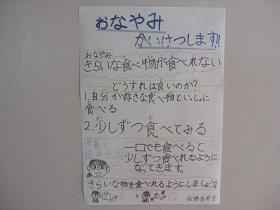 おなやみ
かいけつします!!
おなやみ
きらいな食べ物が食べれない
どうすれば良いのか?
1.自分が好きな食べ物といっしょに
食べる
2.少しずつ食べてみる
一口でも食べると
少しずつ食べれるように
なってきます。
きらいな物を食べれるようにしましょう!
保健委員会